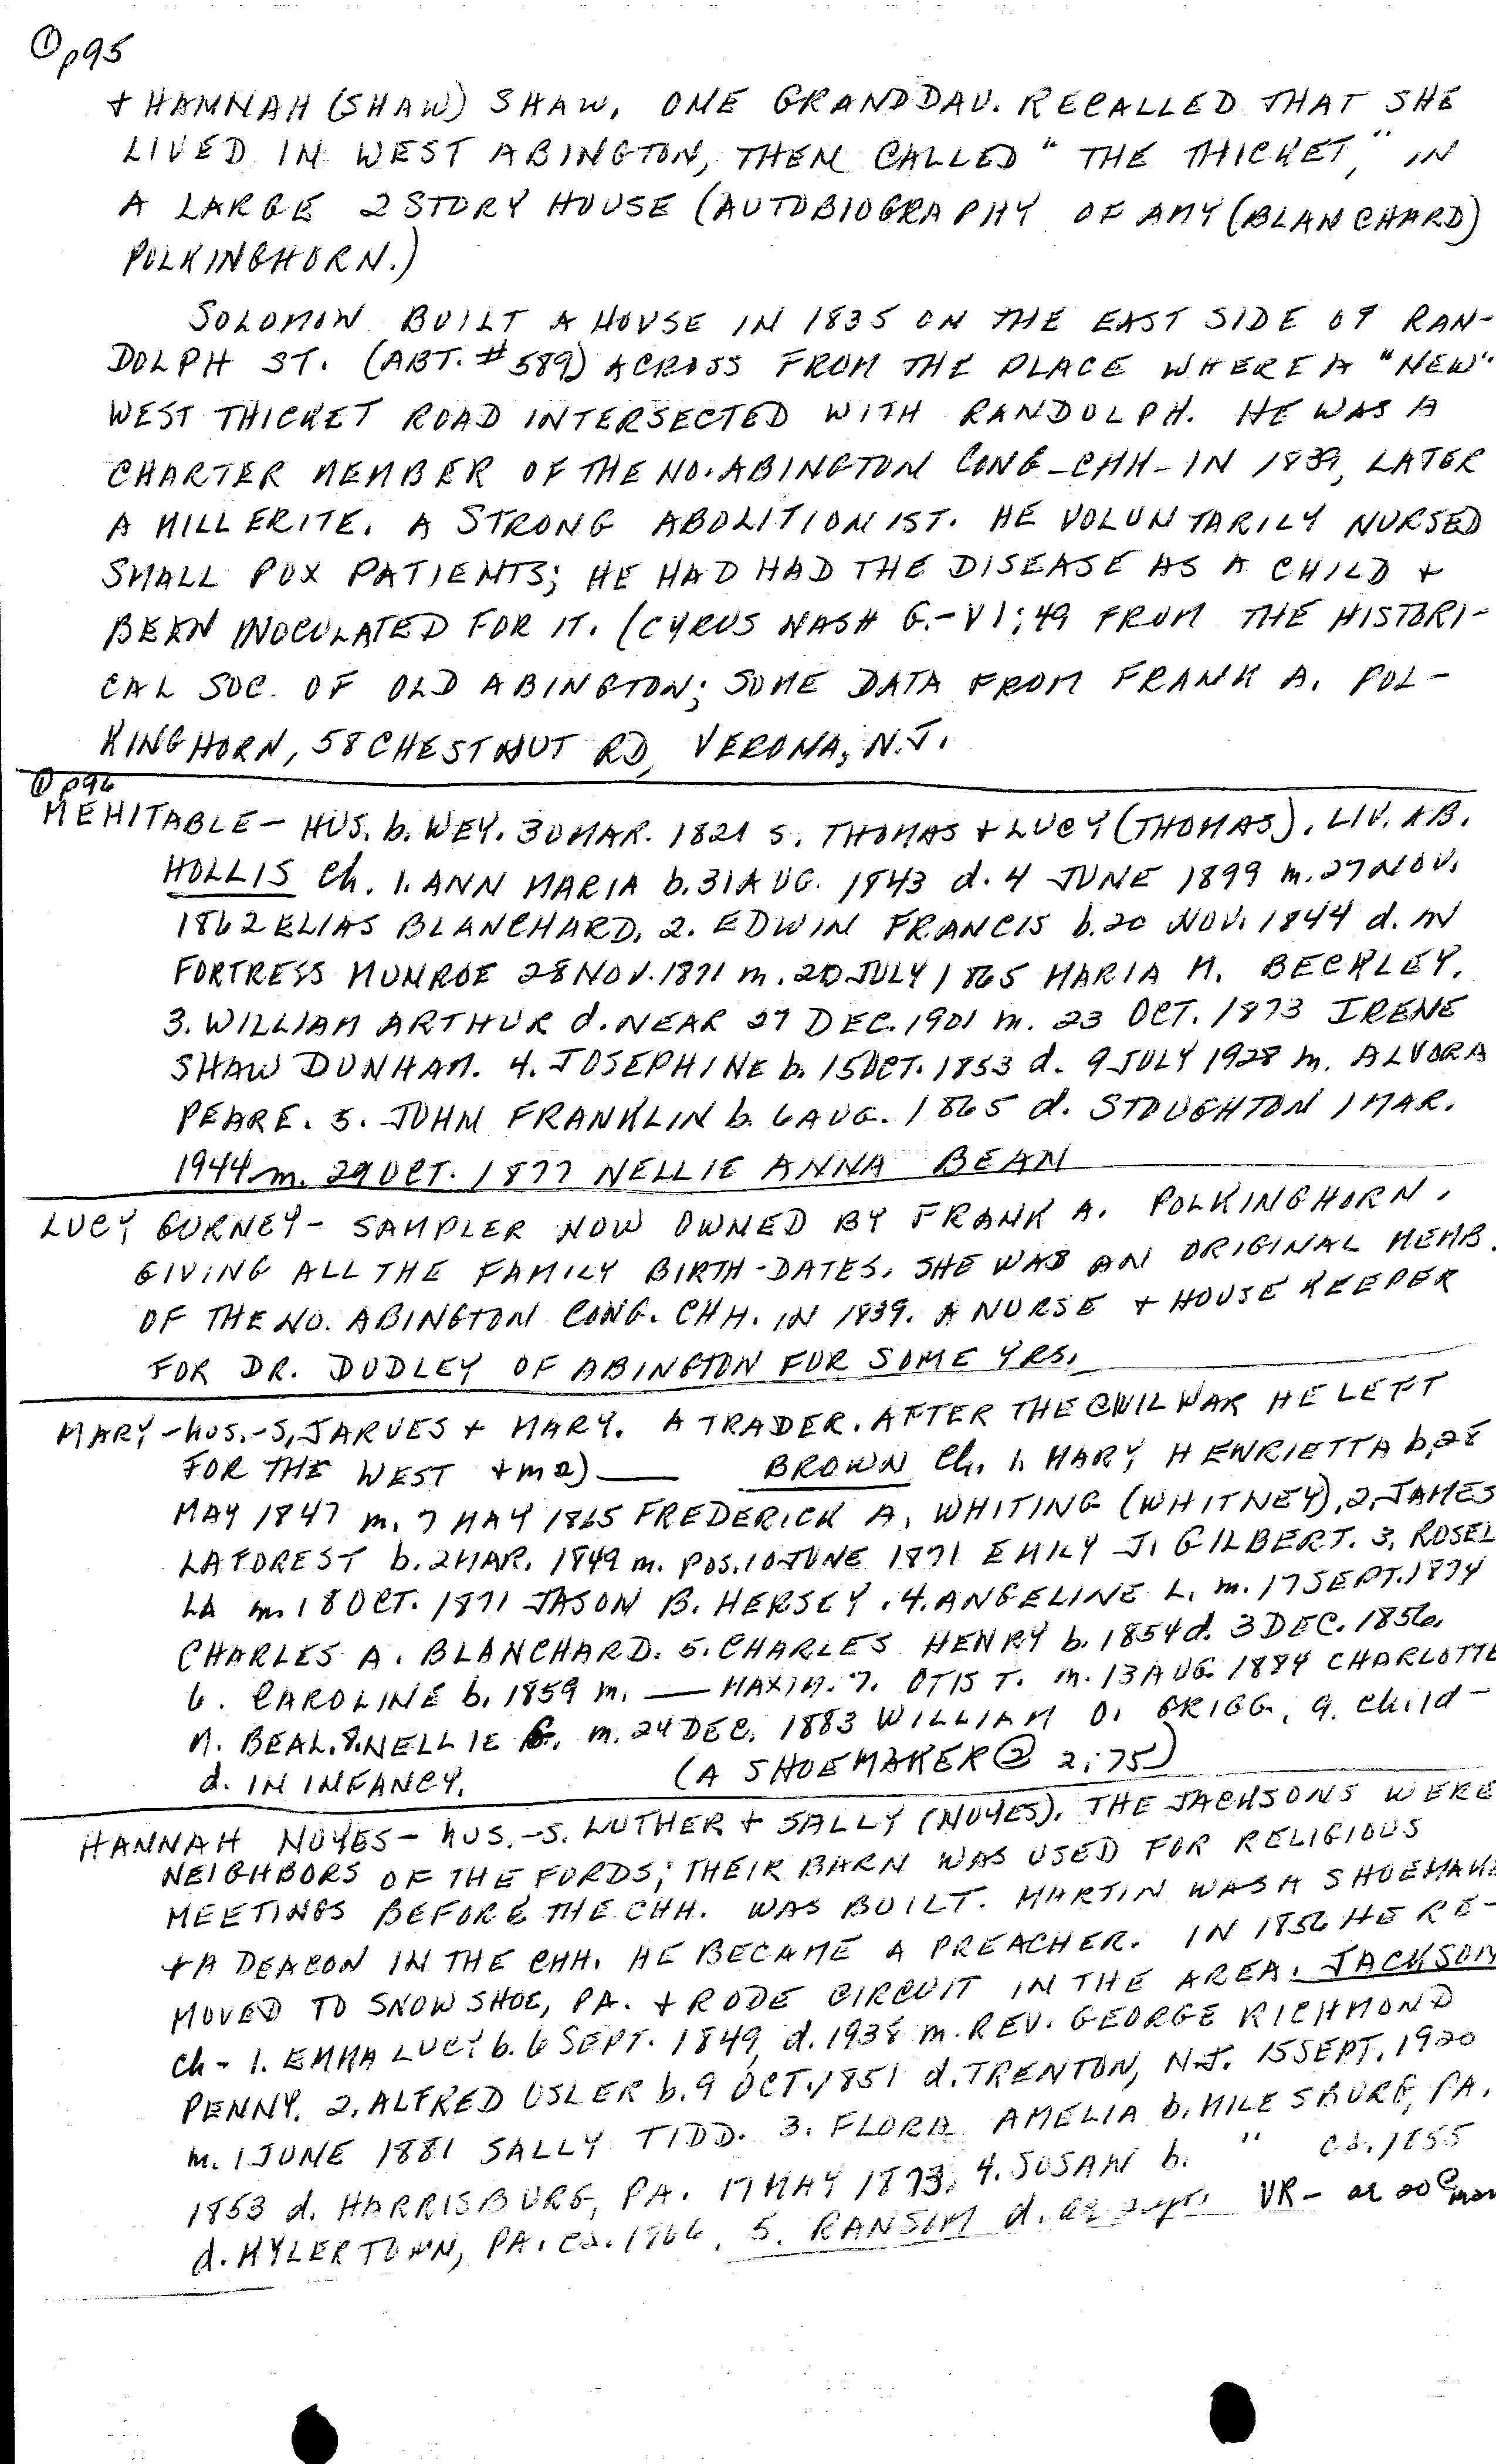 ① p95
+ HANNAH (SHAW) SHAW. ONE GRANDDAU. RECALLED THAT SHE
LIVED IN WEST ABINGTON, THEN CALLED "THE THICKET," IN
A LARGE 2 STORY HOUSE (AUTOBIOGRAPHY OF AMY (BLANCHARD)
POLKINGHORN.)
SOLOMON BUILT A HOUSE IN 1835 ON THE EAST SIDE OF RAN-
DOLPH ST. (ABT. #589) ACROSS FROM THE PLACE WHERE A "NEW"
WEST THICKET ROAD INTERSECTED WITH RANDOLPH. HE WAS A
CHARTER MEMBER OF THE NO. ABINGTON CONG-CHH- IN 1839, LATER
A MILLERITE. A STRONG ABOLITIONIST. HE VOLUNTARILY NURSED
SMALL POX PATIENTS; HE HAD HAD THE DISEASE AS A CHILD +
BEEN INOCULATED FOR IT. (CYRUS NASH G.-VI; 49 FROM THE HISTORI-
CAL SOC. OF OLD ABINGTON; SOME DATA FROM FRANK A. POL-
KINGHORN, 58 CHESTNUT RD, VERONA, N.J.
① p96
MEHITABLE - HUS. b. WEY. 30 MAR. 1821 S. THOMAS + LUCY (THOMAS). LIV. AB.
HOLLIS Ch. 1. ANN MARIA b. 31 AUG. 1843 d. 4 JUNE 1899 m. 27 NOV.
1862 ELIAS BLANCHARD. 2. EDWIN FRANCIS b. 20 NOV. 1844 d. IN
FORTRESS MUNROE 28 NOV. 1871 m. 20 JULY 1865 MARIA M. BECKLEY.
3. WILLIAM ARTHUR d. NEAR 27 DEC. 1901 m. 23 OCT. 1873 IRENE
SHAW DUNHAM. 4. JOSEPHINE b. 15 OCT. 1853 d. 9 JULY 1928 m. ALVORA
PEARE. 5. JOHN FRANKLIN b. 6 AUG. 1865 d. STOUGHTON 1 MAR.
1944 m. 29 OCT. 1877 NELLIE ANNA BEAN
LUCY GURNEY - SAMPLER NOW OWNED BY FRANK A. POLKINGHORN.
GIVING ALL THE FAMILY BIRTH-DATES. SHE WAS AN ORIGINAL MEMB.
OF THE NO. ABINGTON CONG. CHH. IN 1839. A NURSE + HOUSE KEEPER
FOR DR. DUDLEY OF ABINGTON FOR SOME YRS.
MARY - hus. - S. JARVES + MARY. A TRADER. AFTER THE CIVIL WAR HE LEFT
FOR THE WEST + m 2) ___ BROWN Ch. 1. MARY HENRIETTA b. 28
MAY 1847 m. 7 MAY 1865 FREDERICK A. WHITING (WHITNEY). 2. JAMES
LAFOREST b. 2 MAR. 1849 m. POS. 10 JUNE 1871 EMILY J. GILBERT. 3. ROSEL
LA m. 18 OCT. 1871 JASON B. HERSEY. 4. ANGELINE L. m. 17 SEPT. 1874
CHARLES A. BLANCHARD. 5. CHARLES HENRY b. 1854 d. 3 DEC. 1856.
6. CAROLINE b. 1859 m. ___ MAXIM. 7. OTIS T. m. 13 AUG. 1884 CHARLOTTE
M. BEAL. 8. NELLIE G. m. 24 DEC. 1883 WILLIAM O. GRIGG. 9. child -
d. IN INFANCY. (A SHOEMAKER @ 2;75)
HANNAH NOYES - hus. - S. LUTHER + SALLY (NOYES). THE JACKSONS WERE
NEIGHBORS OF THE FORDS; THEIR BARN WAS USED FOR RELIGIOUS
MEETINGS BEFORE THE CHH. WAS BUILT. MARTIN WAS A SHOEMAKE
+ A DEACON IN THE CHH. HE BECAME A PREACHER. IN 1856 HE RE-
MOVED TO SNOW SHOE, PA. + RODE CIRCUIT IN THE AREA. JACKSON
Ch - 1. EMMA LUCY b. 6 SEPT. 1849, d. 1938 m. REV. GEORGE RICHMOND
PENNY. 2. ALFRED OSLER b. 9 OCT. 1851 d. TRENTON, N.J. 15 SEPT. 1920
m. 1 JUNE 1881 SALLY TIDD. 3. FLORA AMELIA b. MILESBURG, PA.
1853 d. HARRISBURG, PA. 17 MAY 1873. 4. SUSAN b. " ca. 1855
d. KYLERTOWN, PA. ca. 1906. 5. RANSOM d. ae 2 yrs. VR - ae 20